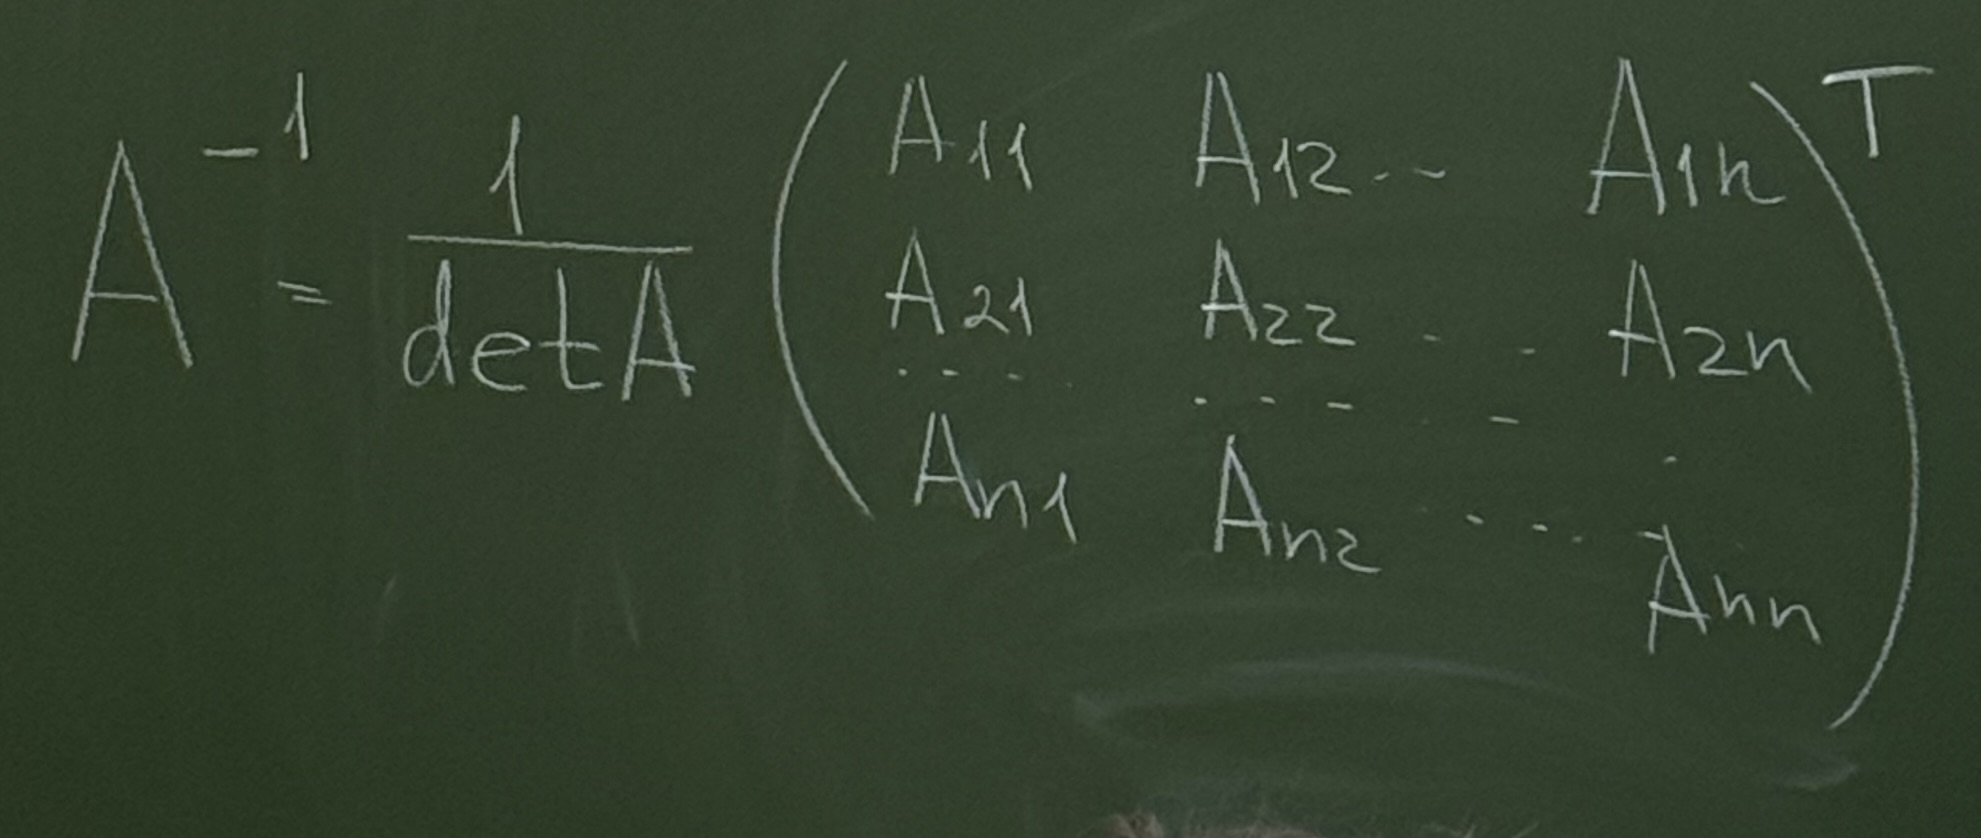 A^{-1} = \frac{1}{\det A} \begin{pmatrix} A_{11} & A_{12} & \dots & A_{1n} \\ A_{21} & A_{22} & \dots & A_{2n} \\ \dots & \dots & \dots & \dots \\ A_{n1} & A_{n2} & \dots & A_{nn} \end{pmatrix}^T